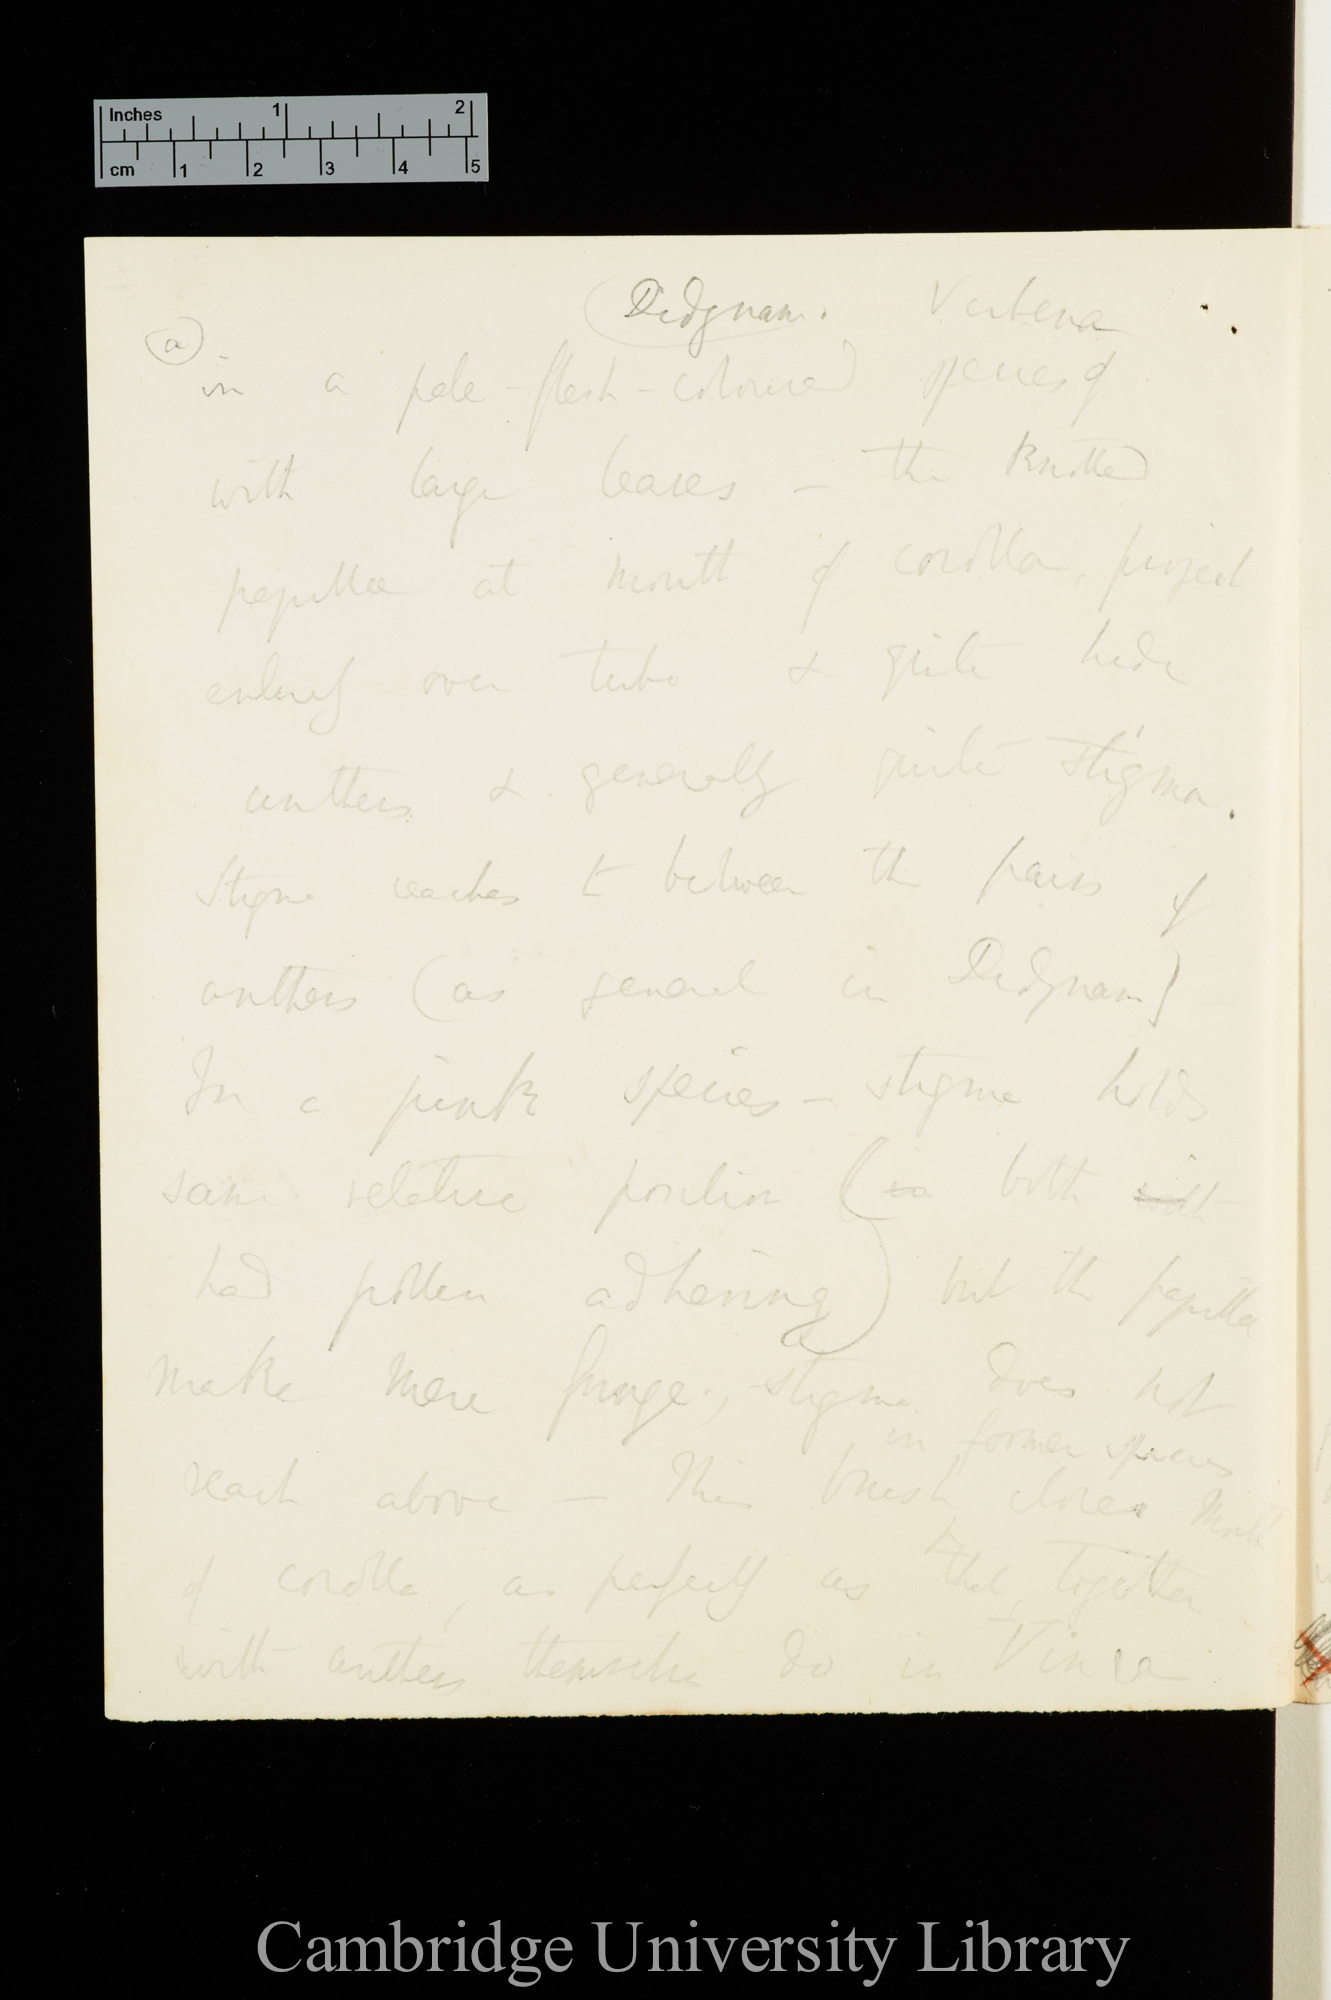 Inches 1 2
cm 1 2 3 4 5
Didynam. Verbena
(a)
in a pale-flesh-coloured species of
with large leaves — the knotted
papillæ at mouth of corolla, project
entirely over tube & quite hide
anthers & generally quite stigma.
Stigma reaches to between the pairs of
anthers (as general in Didynam) —
In a pink species — stigma holds
same relative position (in both with
had pollen adhering) but the papilla
make mere fringe, stigma does not
in former species
reach above — This brush closes mouth
of corolla, as perfectly as that, together
with anthers themselves do in Vinca
Cambridge University Library